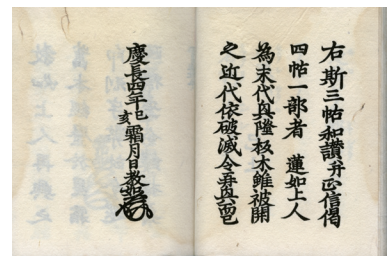 右斯三帖和讃并正信偈
四帖一部者 蓮如上人
為末代興隆板木雖被開
之近代依破滅令再興者也
慶長四年己亥霜月日教如